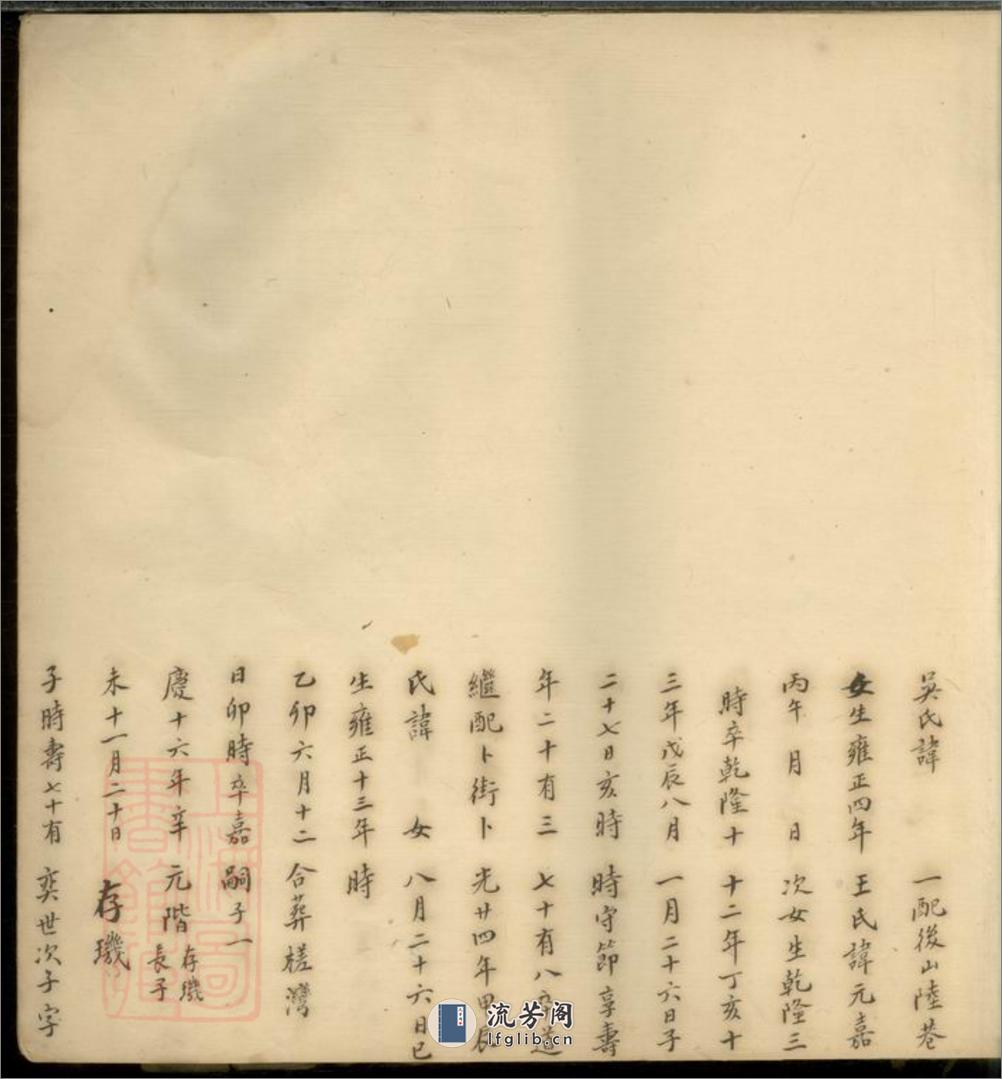 吳氏諱
女生雍正四年
丙午 月 日
時卒乾隆十
三年戊辰八月
二十七日亥時
年二十有三
繼配卜街卜
氏諱 女
生雍正十三年
乙卯六月十二
日卯時卒嘉
慶十六年辛
未十一月二十日
子時壽七十有
一配後山陸巷
王氏諱元嘉
次女生乾隆三
十二年丁亥十
一月二十六日子
時守節享壽
七十有八卒道
光廿四年甲辰
八月二十六日巳
時
合葬槎灣
嗣子一
元階 存璣長子
存璣
奕世次子字
流芳阁
lfglib.cn